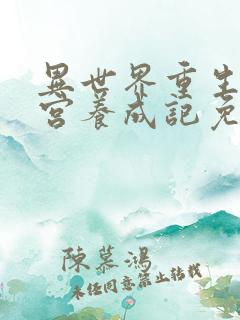 異世界重生
宮養成記免
陳慕鴻
未經同意禁止轉載